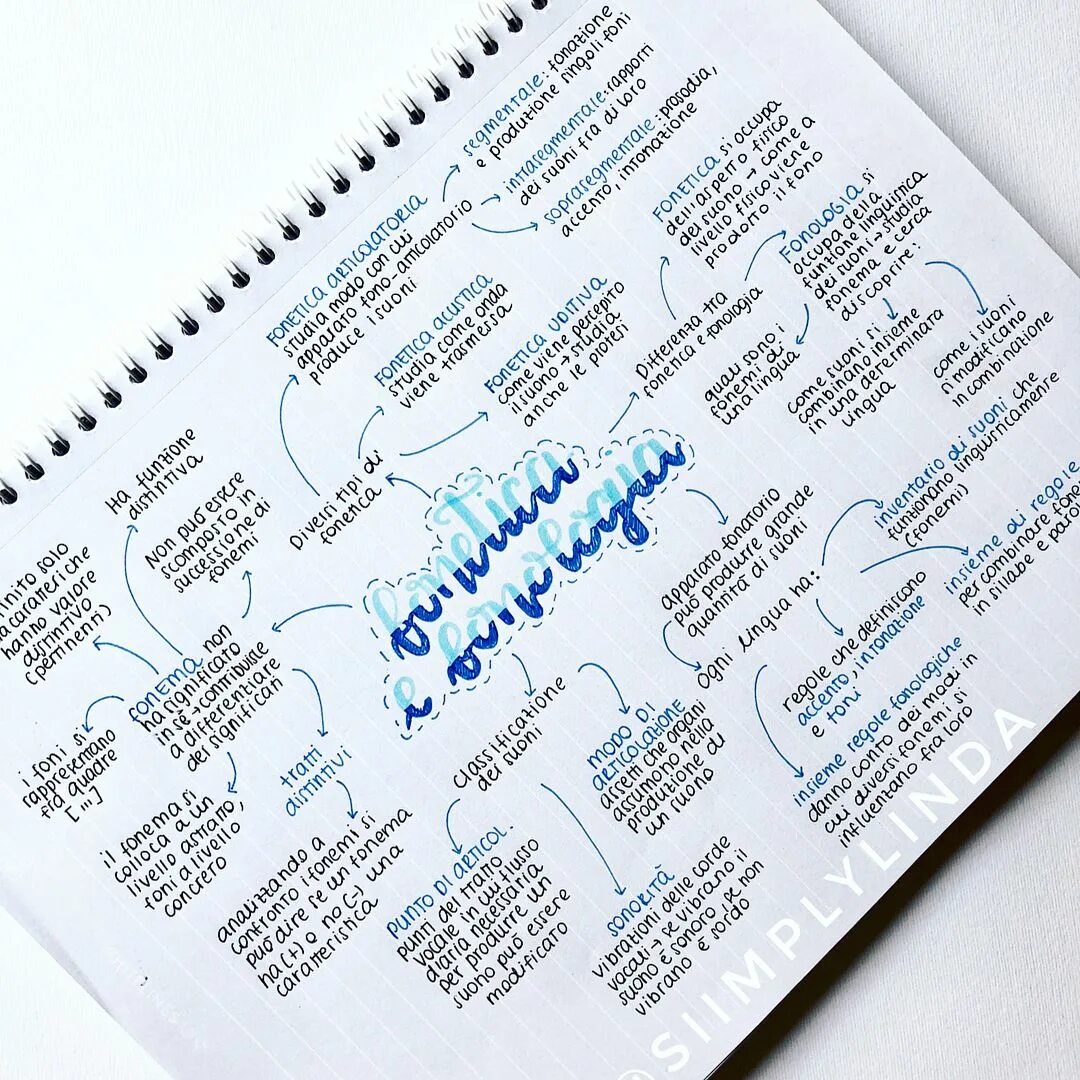 fonetica
e fonologia
Diversi tipi di
fonetica
FONETICA ARTICOLATORIA
studia modo con cui
apparato fono-articolatorio
produce i suoni
segmentale: fonazione
e produzione singoli foni
intrasegmentale: rapporti
dei suoni fra di loro
soprasegmentale: prosodia,
accento, intonazione
FONETICA ACUSTICA
studia come onda
viene trasmessa
FONETICA UDITIVA
come viene percepito
il suono → studia
anche le protesi
Differenza tra
fonetica e fonologia
FONETICA si occupa
dell'aspetto fisico
del suono → come a
livello fisico viene
prodotto il fono
FONOLOGIA si
occupa della
funzione linguistica
dei suoni → studia
fonema e cerca
di scoprire:
quali sono i
fonemi di
una lingua
come suoni si
combinano insieme
in una determinata
lingua
come i suoni
si modificano
in combinazione
apparato fonatorio
può produrre grande
quantità di suoni
Ogni lingua ha:
inventario di suoni che
funzionano linguisticamente
(fonemi)
insieme di regole
per combinare
in sillabe e
regole che definiscono
accento, intonazione
e toni
insieme regole fonologiche
danno conto dei modi in
cui diversi fonemi si
influenzano fra loro
Classificazione
dei suoni
MODO DI
ARTICOLAZIONE
assetti che organi
assumono nella
produzione di
un suono
SONORITÀ
vibrazioni delle corde
vocali → se vibrano il
suono è sonoro, se non
vibrano è sordo
PUNTO DI ARTICOL.
punti del tratto
vocale in cui flusso
d'aria necessaria
per produrre un
suono può essere
modificato
FONEMA non
ha significato
in sé → contribuisce
a differentiare
dei significati
Non può essere
scomposto in
successione di
fonemi
Ha funzione
distintiva
solo
da caratteri che
hanno valore
distintivo
(pertinenti)
i foni si
rappresentano
fra quadre
[ ... ]
il fonema si
colloca a un
livello astratto,
foni a livello
concreto
tratti
distintivi
analizzando a
confronto i fonemi si
può dire se un fonema
ha (+) o no (-) una
caratteristica
@SIIMPLYLINDA